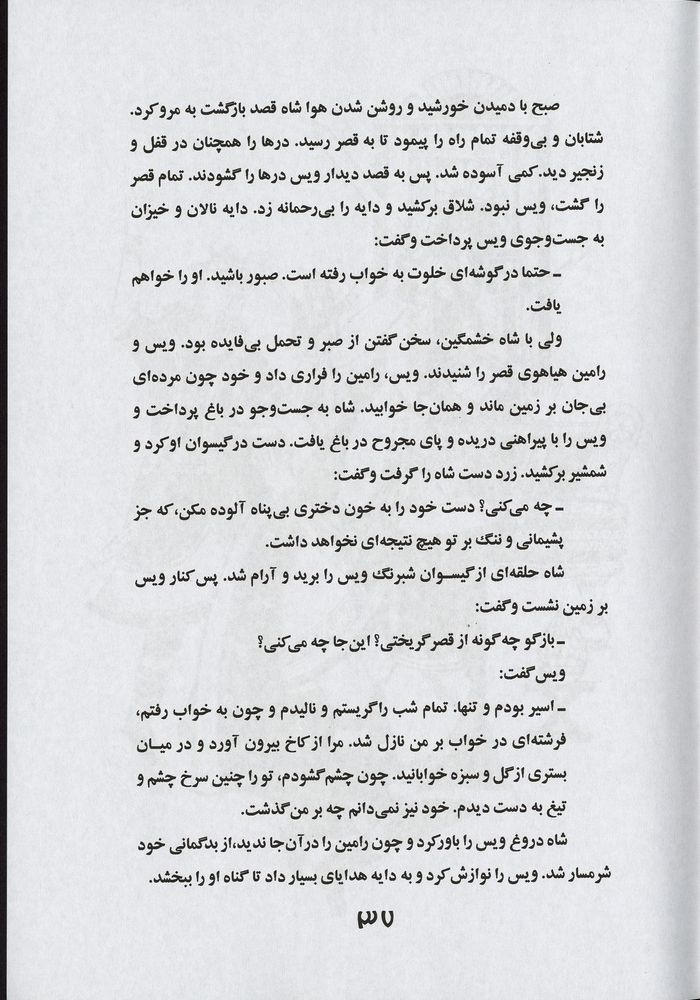 صبح با دمیدن خورشید و روشن شدن هوا شاه قصد بازگشت به مرو کرد.
شتابان و بی‌وقفه تمام راه را پیمود تا به قصر رسید. درها را همچنان در قفل و
زنجیر دید. کمی آسوده شد. پس به قصد دیدار ویس درها را گشودند. تمام قصر
را گشت، ویس نبود. شلاق برکشید و دایه را بی‌رحمانه زد. دایه نالان و خیزان
به جست‌وجوی ویس پرداخت و گفت:
ـ حتما در گوشه‌ای خلوت به خواب رفته است. صبور باشید. او را خواهم
یافت.
ولی با شاه خشمگین، سخن گفتن از صبر و تحمل بی‌فایده بود. ویس و
رامین هیاهوی قصر را شنیدند. ویس، رامین را فراری داد و خود چون مرده‌ای
بی‌جان بر زمین ماند و همان‌جا خوابید. شاه به جست‌وجو در باغ پرداخت و
ویس را با پیراهنی دریده و پای مجروح در باغ یافت. دست در گیسوان او کرد و
شمشیر برکشید. زرد دست شاه را گرفت و گفت:
ـ چه می‌کنی؟ دست خود را به خون دختری بی‌پناه آلوده مکن، که جز
پشیمانی و ننگ بر تو هیچ نتیجه‌ای نخواهد داشت.
شاه حلقه‌ای از گیسوان شبرنگ ویس را برید و آرام شد. پس کنار ویس
بر زمین نشست و گفت:
ـ بازگو چه گونه از قصر گریختی؟ این‌جا چه می‌کنی؟
ویس گفت:
ـ اسیر بودم و تنها. تمام شب را گریستم و نالیدم و چون به خواب رفتم،
فرشته‌ای در خواب بر من نازل شد. مرا از کاخ بیرون آورد و در میان
بستری از گل و سبزه خوابانید. چون چشم گشودم، تو را چنین سرخ چشم و
تیغ به دست دیدم. خود نیز نمی‌دانم چه بر من گذشت.
شاه دروغ ویس را باور کرد و چون رامین را در آن‌جا ندید، از بدگمانی خود
شرمسار شد. ویس را نوازش کرد و به دایه هدایای بسیار داد تا گناه او را ببخشد.
۳۷